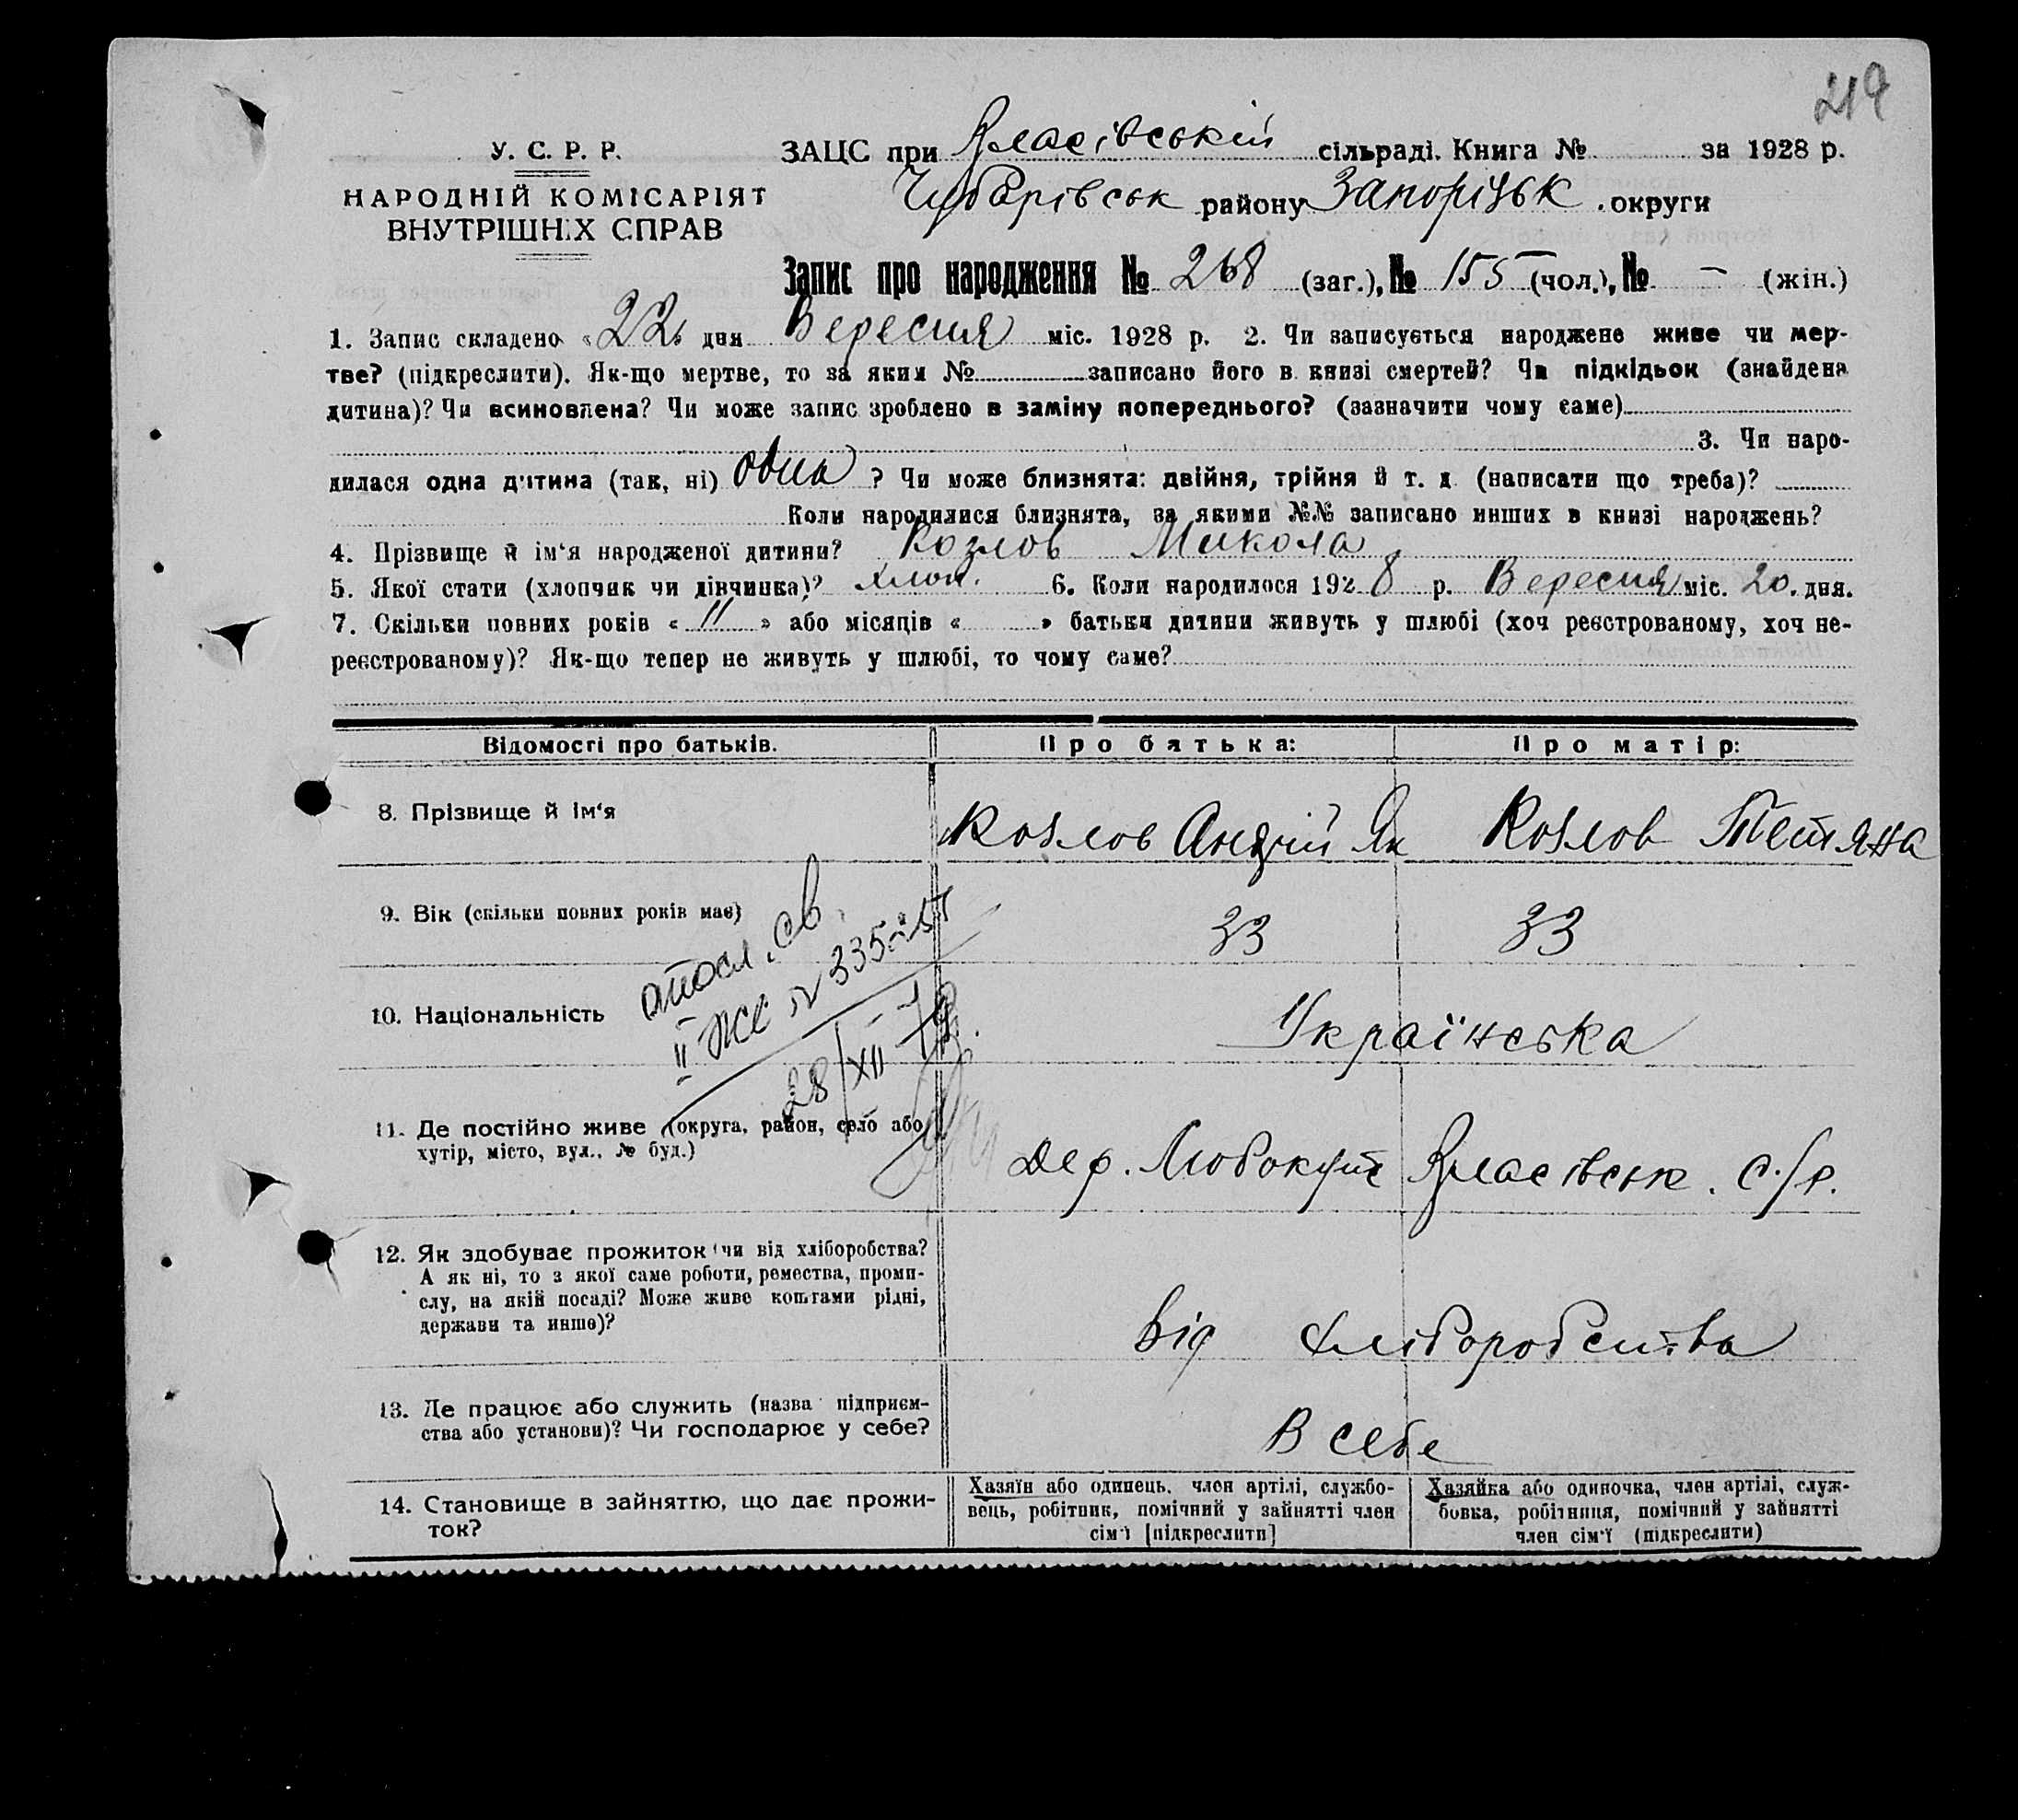 219
У. С. Р. Р.
НАРОДНІЙ КОМІСАРІЯТ
ВНУТРІШНІХ СПРАВ
ЗАЦС при Власівській сільраді. Книга № за 1928 р.
Чубарівськ району Запорізьк . округи
Запис про народження № 268 (заг.), № 155 (чол.), № — (жін.)
1. Запис складено «22» дня Вересня міс. 1928 р. 2. Чи записується народжене живе чи мер-
тве? (підкреслити). Як-що мертве, то за яким № записано його в книзі смертей? Чи підкідьок (знайдена
дитина)? Чи всиновлена? Чи може запис зроблено в заміну попереднього? (зазначити чому саме)
3. Чи наро-
дилася одна дитина (так, ні) одна ? Чи може близнята: двійня, трійня й т. д. (написати що треба)?
Коли народилися близнята, за якими №№ записано инших в книзі народжень?
4. Прізвище й ім'я народженої дитини? Козлов Микола
5. Якої стати (хлопчик чи дівчинка)? хлоп. 6. Коли народилося 1928 р. Вересня міс. 20. дня.
7. Скільки повних років « 11 » або місяців « » батьки дитини живуть у шлюбі (хоч реєстрованому, хоч не-
реєстрованому)? Як-що тепер не живуть у шлюбі, то чому саме?
Відомості про батьків. Про батька: Про матір:
8. Прізвище й ім'я Козлов Андрій Як Козлов Тетяна
9. Вік (скільки повних років має) 33 33
10. Національність Українська
II ЖС № 335257
28/XII
11. Де постійно живе (округа, район, село або
хутір, місто, вул., № буд.)
Дер. Любокут Власівськ. с/р.
12. Як здобуває прожиток (чи від хліборобства?
А як ні, то з якої саме роботи, ремества, проми-
слу, на якій посаді? Може живе коштами рідні,
держави та инше)?
Від хліборобства
13. Де працює або служить (назва підприєм-
ства або установи)? Чи господарює у себе?
В себе
14. Становище в зайняттю, що дає прожи-
ток?
Хазяїн або одинець, член артілі, службо-
вець, робітник, помічний у зайнятті член
сім'ї [підкреслити]
Хазяйка або одиночка, член артілі, служ-
бовка, робітниця, помічний у зайнятті
член сім'ї (підкреслити)